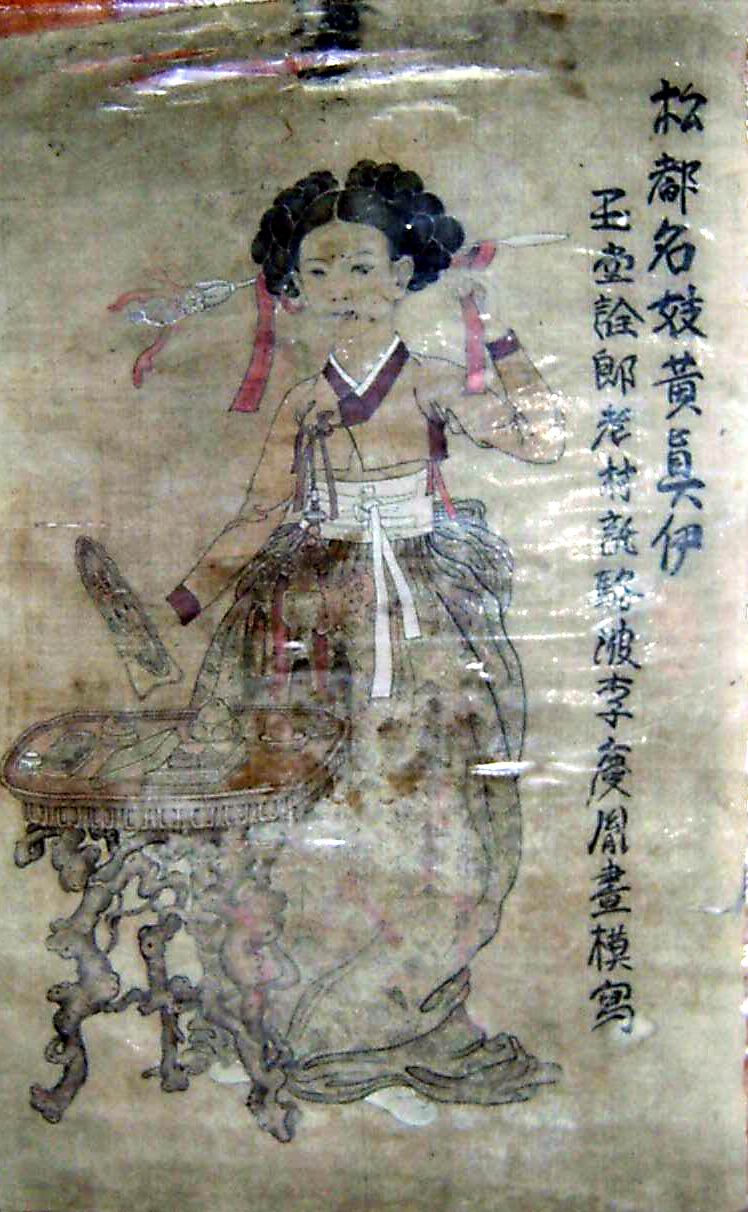 松都名妓黃眞伊
玉堂詮郎老村託駱波李慶胤畫模寫